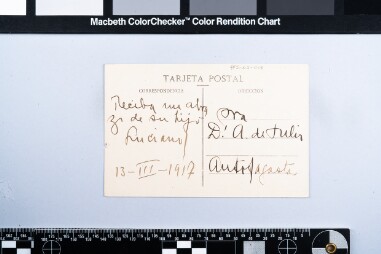 Macbeth ColorChecker™ Color Rendition Chart
TARJETA POSTAL
CORRESPONDENCIA
DIRECCION
Reciba un abra
zo de su hijo
Luciano
13-III-1917
Sra
Dª A. de Fulis
Antofagasta